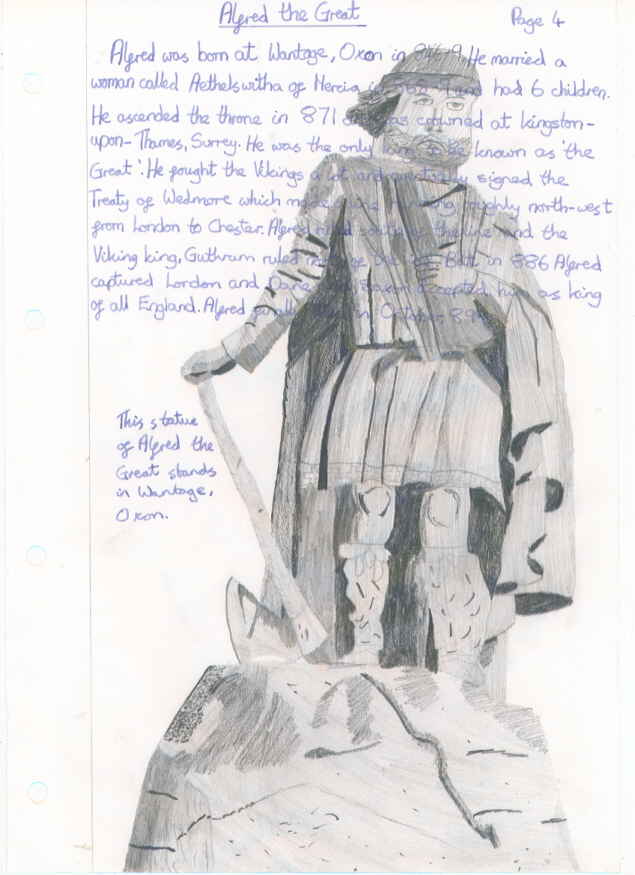 Alfred the Great
Page 4
Alfred was born at Wantage, Oxon in He married a
woman called Aethelswitha of Mercia in and had 6 children.
He ascended the throne in 871 was crowned at Kingston-
upon-Thames, Surrey. He was the only king to be known as 'the
Great'. He fought the Vikings a lot and eventually signed the
Treaty of Wedmore which made a line running roughly north-west
from London to Chester. Alfred ruled south of the line and the
Viking king, Guthrum ruled the But in 886 Alfred
captured London and accepted him as king
of all England. Alfred finally in October
This statue
of Alfred the
Great stands
in Wantage,
Oxon.